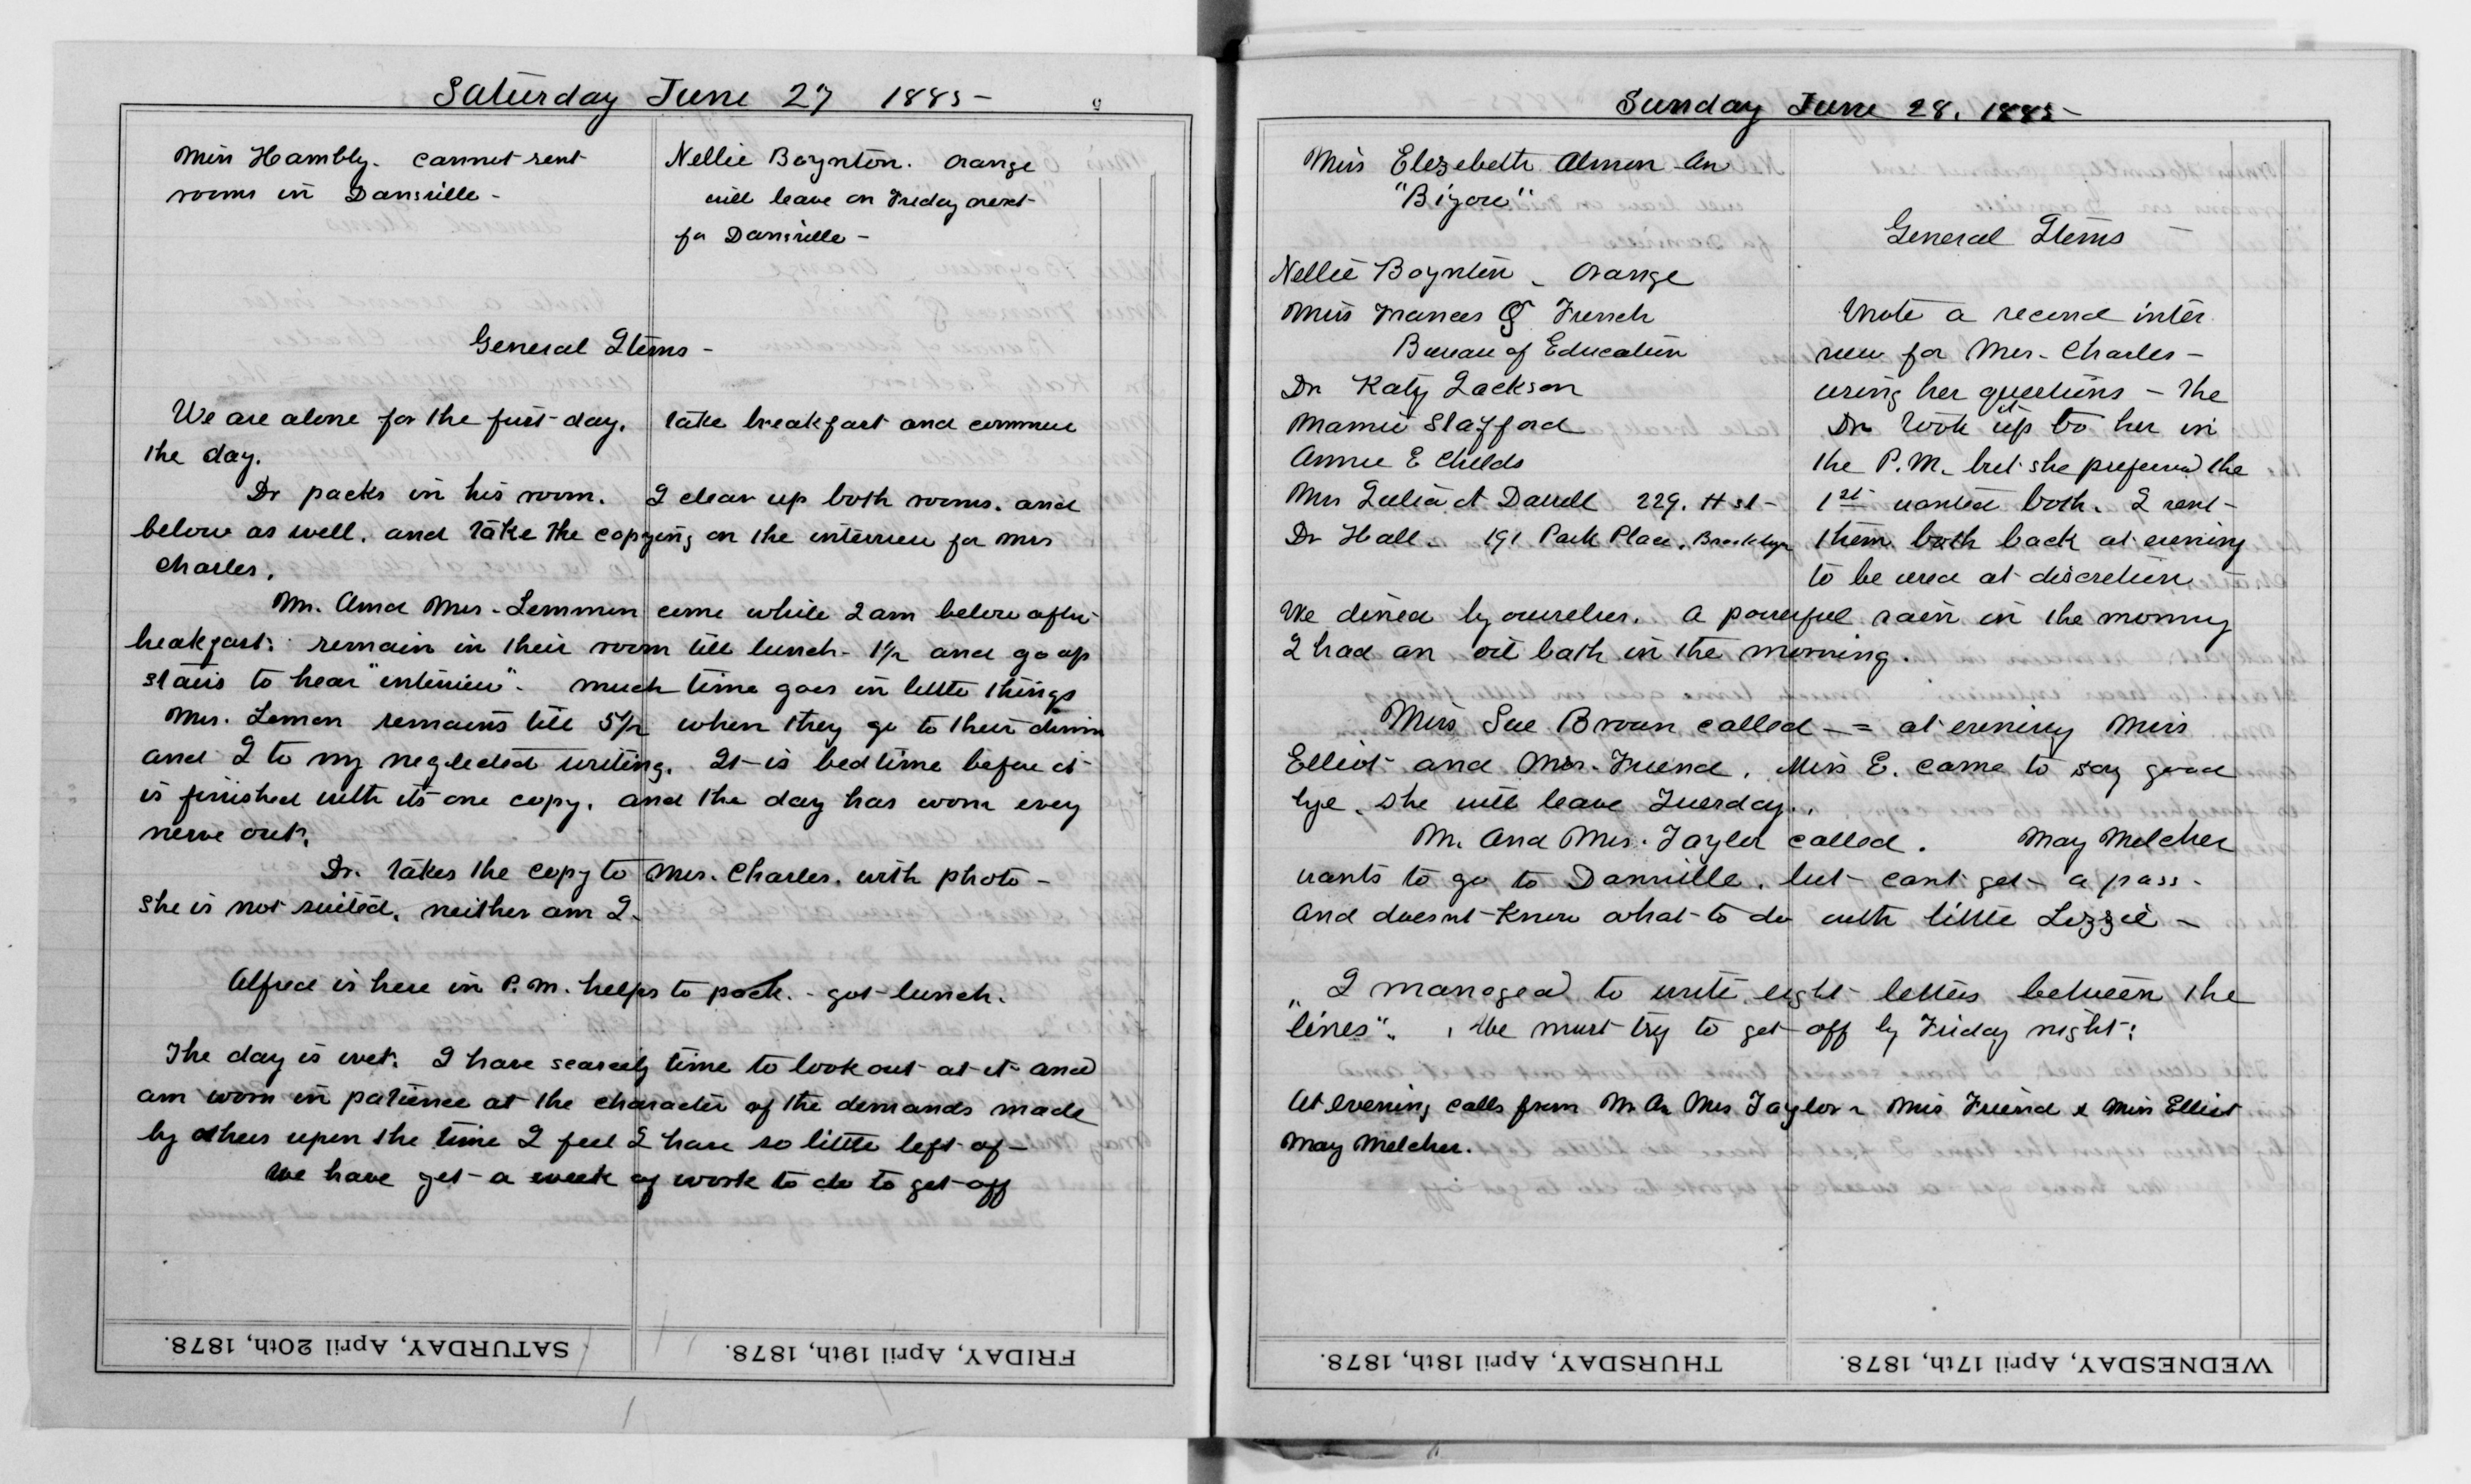 Saturday June 27 1885 -
Miss Hambly. cannot rent
rooms in Dansville -
Nellie Boynton. Orange
will leave on Friday next
for Dansville -
General Items -
We are alone for the first day. take breakfast and commence
the day.
Dr packs in his room. I clear up both rooms. and
below as well. and take the copying on the interview for Mrs
Charles.
Mr. And Mrs. Lemmon come while I am below after
breakfast: remain in their room till lunch - 1 1/2 and go up
stairs to hear "interview". Much time goes in little things
Mrs. Lemon remains till 5 1/2 when they go to their dinner
and I to my neglected writing. It is bedtime before it
is finished with its one copy. and the day has worn every
nerve out.
Dr. takes the copy to Mrs. Charles. with photo -
she is not suited. neither am I.
Alfred is here in P.M. helps to pack. - got lunch.
The day is wet. I have scarcely time to look out at it and
am worn in patience at the character of the demands made
by others upon the time I feel I have so little left of -
We have yet a week of work to do to get off
SATURDAY, April 20th, 1878.
FRIDAY, April 19th, 1878.
Sunday June 28. 1885 -
Miss Elezebeth Almon An
"Bijou"
General Items
Nellie Boynton - Orange
Miss Frances G French
Bureau of Education
Dr Katy Jackson
Mamie Stafford
Annie E Childs
Mrs Julia A Darrell 229. H st -
Dr Hall - 191 Park Place. Brooklyn
Wrote a second inter
view for Mrs. Charles -
using her questions - the
Dr took it up to her in
the P.M. but she preferred the
1st wanted both. I sent
them both back at evening
to be used at discretion
We dined by ourselves. A powerful rain in the morning
I had an oil bath in the morning.
Miss Sue Brown called - = at evening Miss
Elliot and Mrs. Friend. Miss E. came to say good
bye. she will leave Tuesday.
Mr. And Mrs. Taylor called. May Melcher
wants to go to Dansville. but cant get a pass -
And doesnt know what to do with little Lizzie -
I managed to write eight letters "between the
lines". We must try to get off by Friday night:
At evening calls from Mr An Mrs Taylor Mrs Friend & Miss Elliot
May Melcher.
THURSDAY, April 18th, 1878.
WEDNESDAY, April 17th, 1878.